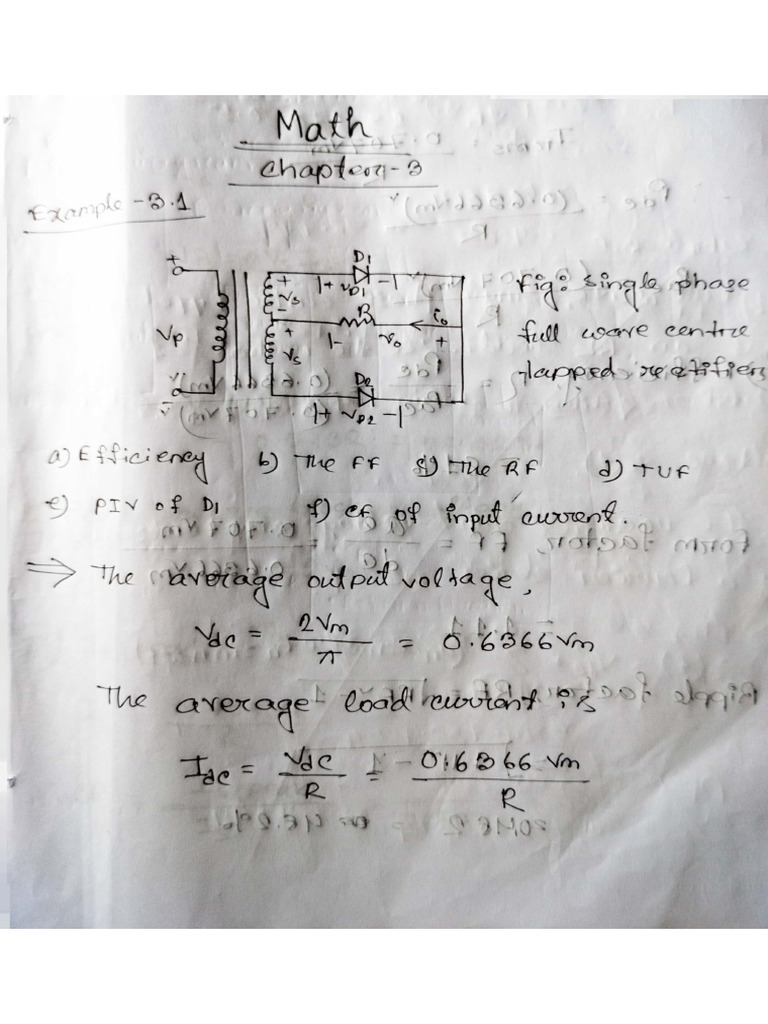 Math
Chapter-3
Example-3.1
D1
+ + VD1 -
Vs R io
Vp + - vo +
Vs
D2
- + VD2 -
Fig: single phase
full wave centre
tapped rectifier
a) Efficiency b) The FF c) the RF d) TUF
e) PIV of D1 f) CF of input current.
⇒ The average output voltage,
Vdc = 2Vm/π = 0.6366Vm
The average load current is
Idc = Vdc/R = 0.6366 Vm/R